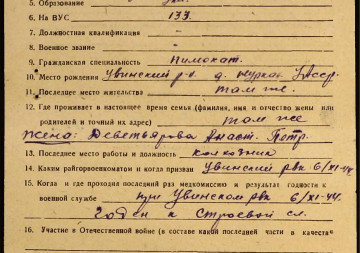 5. Образование
6. На ВУС 133.
7. Должностная квалификация -
8. Военное звание -
9. Гражданская специальность пимокат.
10. Место рождения Увинский р-н д. УАССР.
11. Последнее место жительства там же.
12. Где проживает в настоящее время семья (фамилия, имя и отчество жены или
родителей и точный их адрес) там же
жена: Деветьярова Анаст. Петр.
13. Последнее место работы и должность колхозник
14. Каким райгорвоенкоматом и когда призван Увинский рвк 6/XI-44.
15. Когда и где проходил последний раз медкомиссию и результат годности к
военной службе при Увинском рвк 6/XI-44.
Годен к строевой сл.
16. Участие в Отечественной войне (в составе какой последней части в качеств